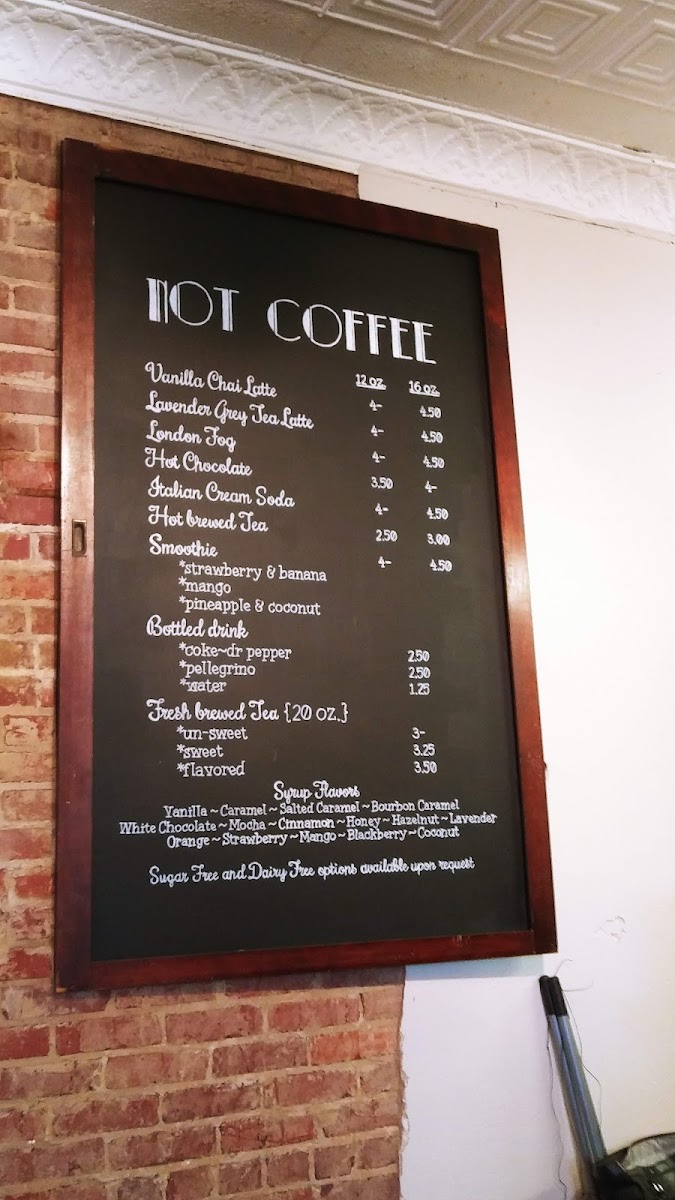 NOT COFFEE
12 oz. 16 oz.
Vanilla Chai Latte 4- 4.50
Lavender Grey Tea Latte 4- 4.50
London Fog 4- 4.50
Hot Chocolate 3.50 4-
Italian Cream Soda 4- 4.50
Hot brewed Tea 2.50 3.00
Smoothie 4- 4.50
*strawberry & banana
*mango
*pineapple & coconut
Bottled drink
*coke~dr pepper 2.50
*pellegrino 2.50
*water 1.25
Fresh brewed Tea {20 oz.}
*un-sweet 3-
*sweet 3.25
*flavored 3.50
Syrup Flavors
Vanilla ~ Caramel ~ Salted Caramel ~ Bourbon Caramel
White Chocolate ~ Mocha ~ Cinnamon ~ Honey ~ Hazelnut ~ Lavender
Orange ~ Strawberry ~ Mango ~ Blackberry ~ Coconut
Sugar Free and Dairy Free options available upon request